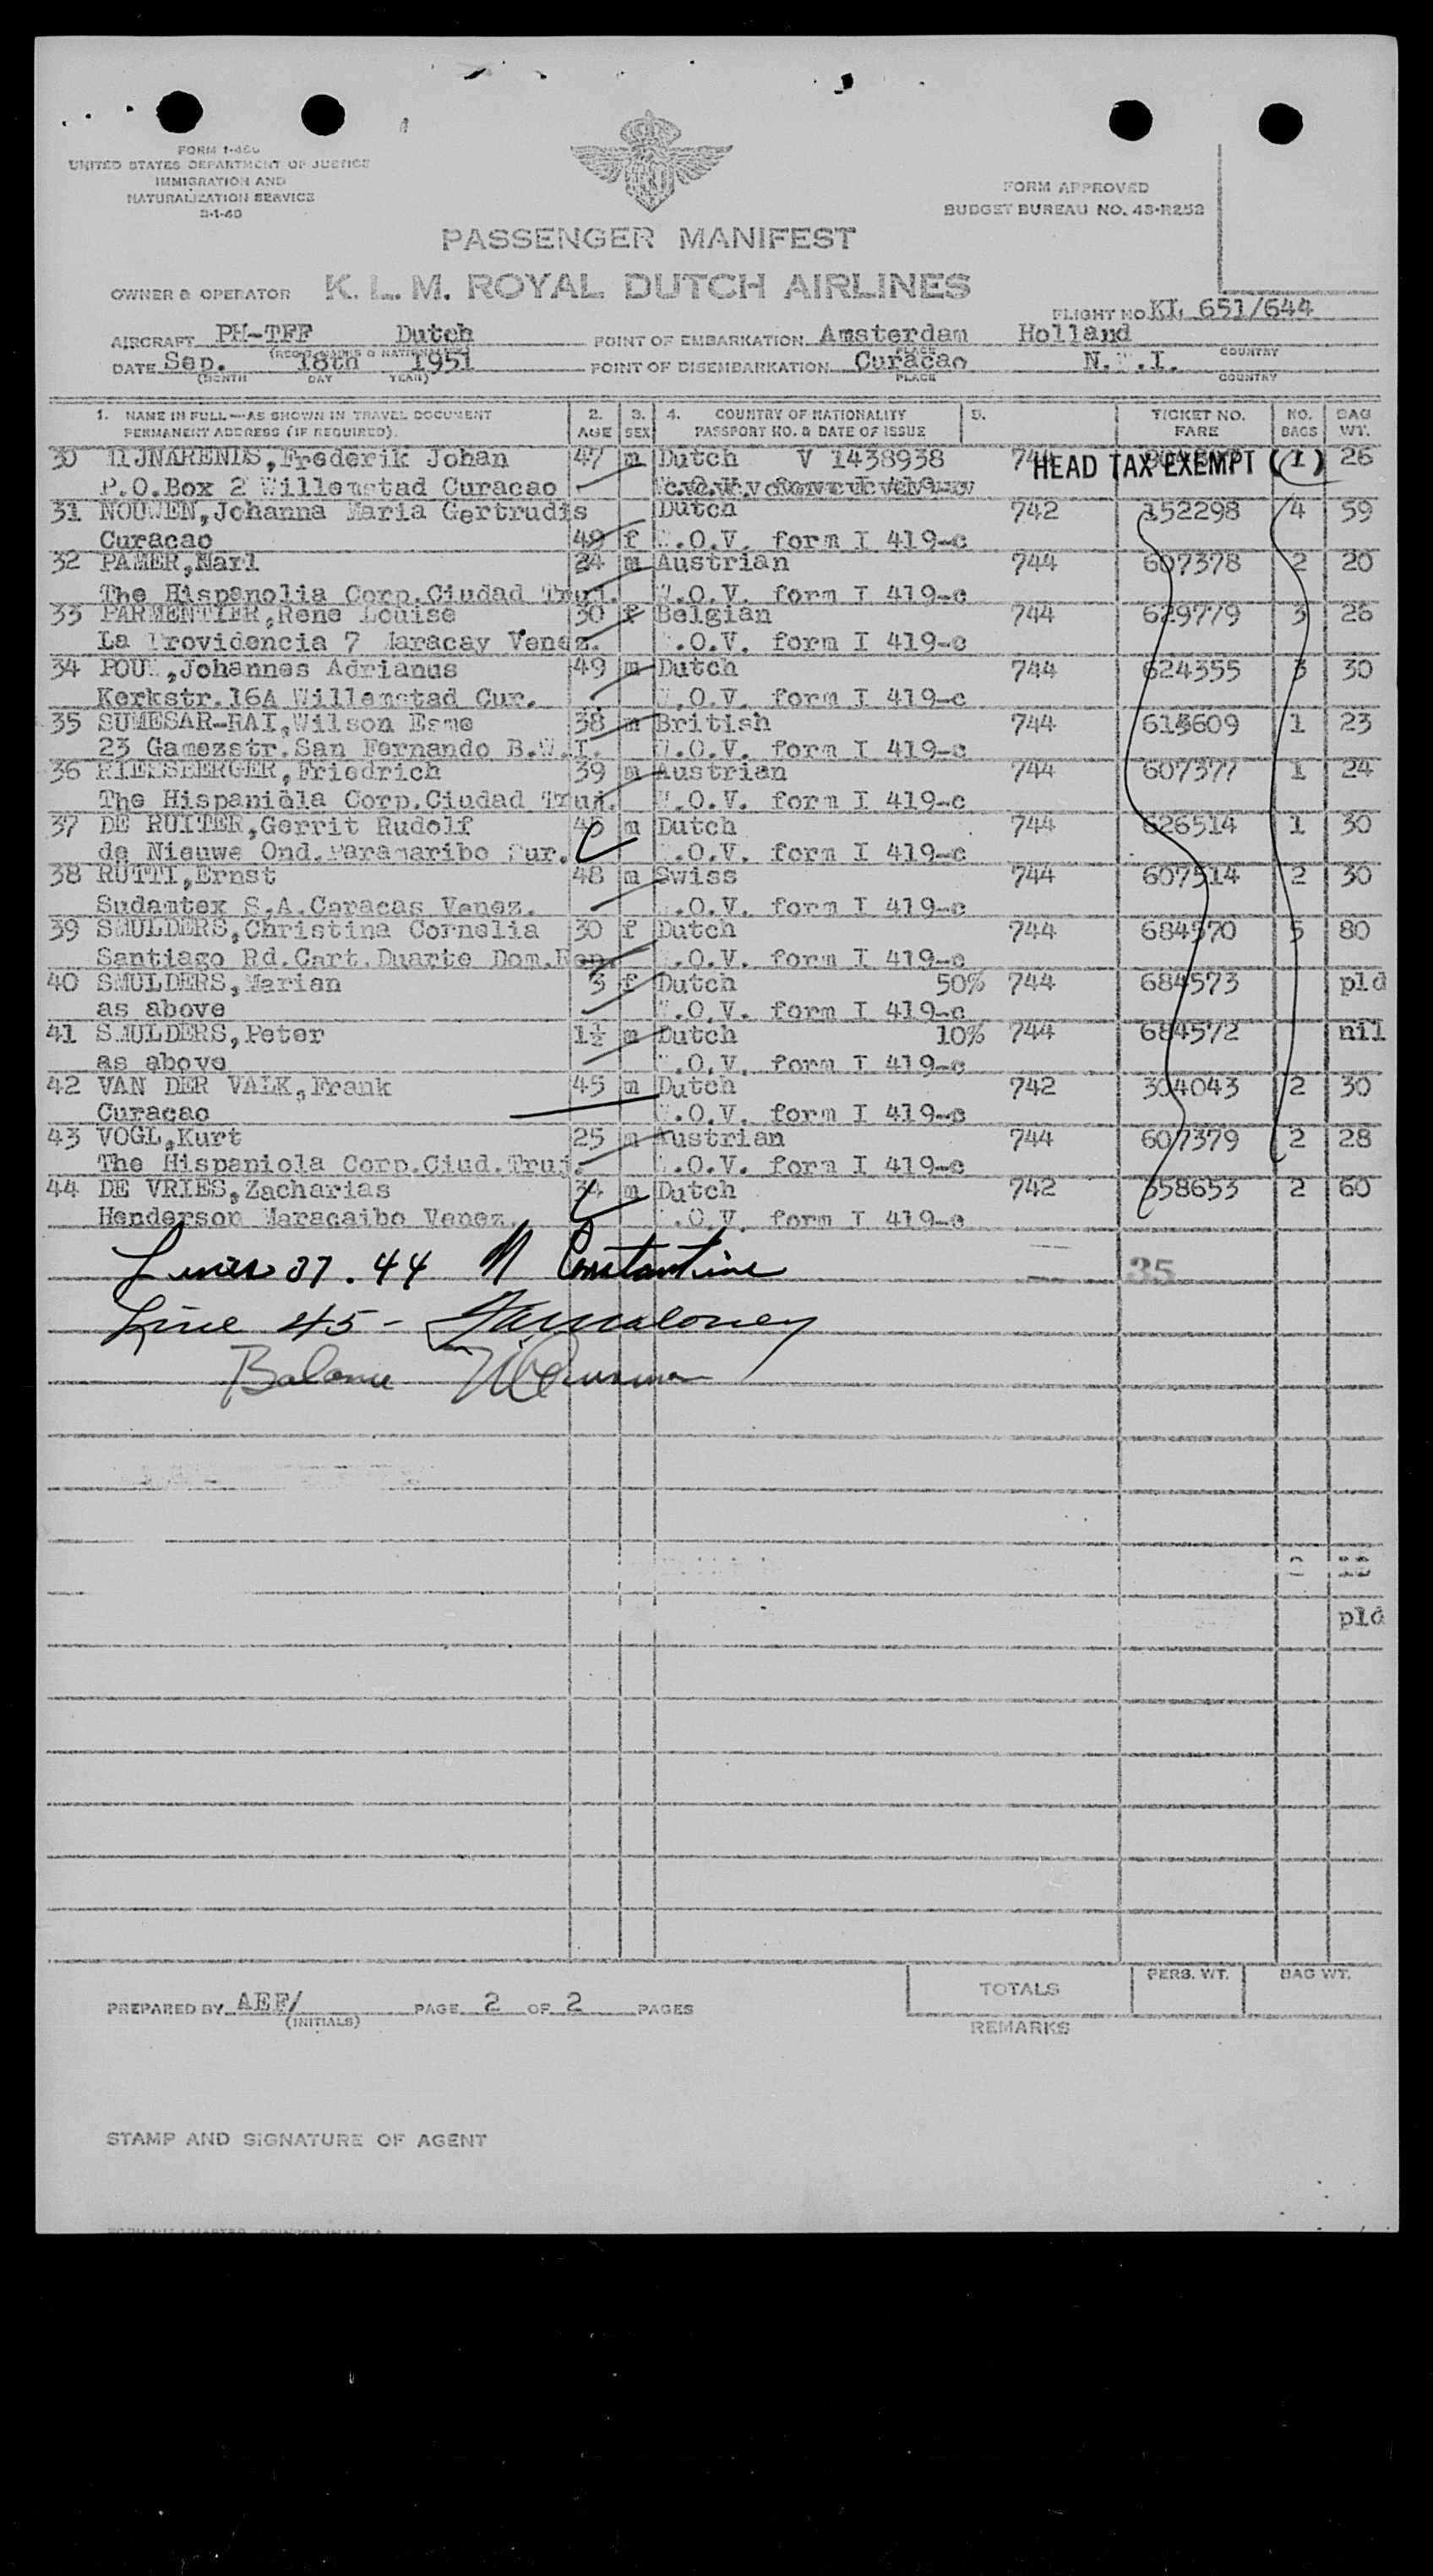 UNITED STATES DEPARTMENT OF JUSTICE
IMMIGRATION AND
NATURALIZATION SERVICE
FORM APPROVED
BUDGET BUREAU NO. 43-R252
PASSENGER MANIFEST
OWNER & OPERATOR K. L. M. ROYAL DUTCH AIRLINES
FLIGHT NO KL 651/644
AIRCRAFT PH-TFF Dutch POINT OF EMBARKATION Amsterdam Holland
DATE Sep. 18th 1951 POINT OF DISEMBARKATION Curacao
(MONTH DAY YEAR) PLACE COUNTRY
1. NAME IN FULL—AS SHOWN IN TRAVEL DOCUMENT 2. 3. 4. COUNTRY OF NATIONALITY 5. TICKET NO. NO. BAG
PERMANENT ADDRESS (IF REQUIRED). AGE SEX PASSPORT NO. & DATE OF ISSUE FARE BAGS WT.
30 Frederik Johan 47 m Dutch V 1438938 HEAD TAX EXEMPT (1) 26
P.O.Box 2 Willemstad Curacao
31 NOUWEN,Johanna Maria Gertrudis Dutch 742 152298 4 59
Curacao 49 f W.O.V. form I 419-c
32 PAMER, 24 m Austrian 744 607378 2 20
The Hispanolia Corp.Ciudad Truj. W.O.V. form I 419-c
33 PARMENTIER,Rene Louise 30 f Belgian 744 629779 3 26
La Providencia 7 Maracay Venez. W.O.V. form I 419-c
34 Johannes Adrianus 49 m Dutch 744 624355 3 30
Kerkstr.16A Willemstad Cur. W.O.V. form I 419-c
35 SUMESAR-RAI,Wilson Esme 38 m British 744 1 23
23 Gamezstr.San Fernando B.W.I. W.O.V. form I 419-c
36 Friedrich 39 m Austrian 744 607377 1 24
The Hispaniola Corp.Ciudad Truj. W.O.V. form I 419-c
37 DE RUITER,Gerrit Rudolf m Dutch 744 626514 1 30
de Nieuwe Ond.Paramaribo Sur. W.O.V. form I 419-c
38 RUTTI,Ernst 48 m Swiss 744 607514 2 30
Sudamtex S.A.Caracas Venez. W.O.V. form I 419-c
39 SMULDERS,Christina Cornelia 30 f Dutch 744 684570 5 80
Santiago Rd.Cart.Duarte Dom.Rep. W.O.V. form I 419-c
40 SMULDERS,Marian 3 f Dutch 50% 744 684573 pld
as above W.O.V. form I 419-c
41 SMULDERS,Peter 1½ m Dutch 10% 744 684572 nil
as above W.O.V. form I 419-c
42 VAN DER VALK,Frank 45 m Dutch 742 304043 2 30
Curacao W.O.V. form I 419-c
43 VOGL,Kurt 25 m Austrian 744 607379 2 28
The Hispaniola Corp.Ciud.Truj. W.O.V. form I 419-c
44 DE VRIES,Zacharias 34 m Dutch 742 358653 2 60
Henderson Maracaibo Venez. W.O.V. form I 419-c
Lines 37. 44 Constantine 35
Line 45-
Balance
pld
PREPARED BY AEF/ PAGE 2 OF 2 PAGES
(INITIALS)
TOTALS PERS. WT. BAG WT.
REMARKS
STAMP AND SIGNATURE OF AGENT